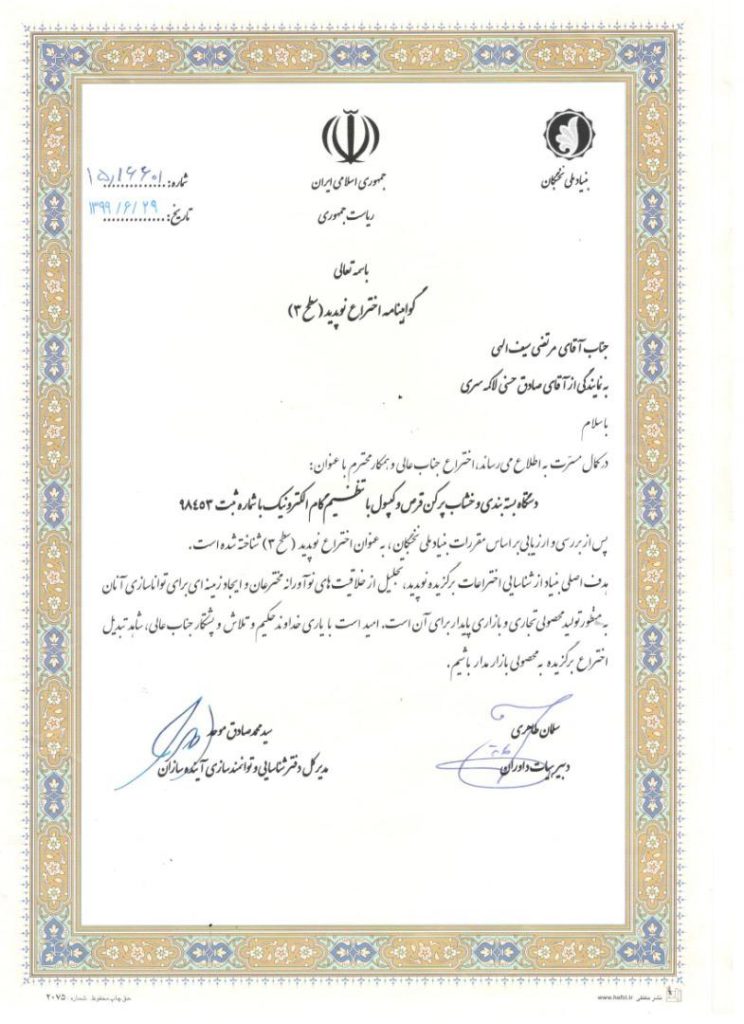 بنیاد ملی نخبگان
جمهوری اسلامی ایران
ریاست جمهوری
شماره: ۱۵/۱۶۶۰۱
تاریخ: ۱۳۹۹/۶/۲۹
باسمه تعالی
گواهینامه اختراع نوپدید (سطح ۳)
جناب آقای مرتضی سیف الهی
به نمایندگی از آقای صادق حسنی لاکه سری
با سلام
در کمال مسرّت به اطلاع می رساند، اختراع جناب عالی و همکار محترم با عنوان:
دستگاه بسته بندی و خشاب پرکن قرص و کپسول با تنظیم گام الکترونیک با شماره ثبت ۹۸۴۵۳
پس از بررسی و ارزیابی بر اساس مقررات بنیاد ملی نخبگان، به عنوان اختراع نوپدید (سطح ۳) شناخته شده است.
هدف اصلی بنیاد از شناسایی اختراعات برگزیده نوپدید، تجلیل از خلاقیت های نوآورانه مخترعان و ایجاد زمینه ای برای توانا سازی آنان
به منظور تولید محصولی تجاری و بازاری پایدار برای آن است. امید است با یاری خداوند حکیم و تلاش و پشتکار جناب عالی، شاهد تبدیل
اختراع برگزیده به محصولی بازار مدار باشیم.
سلمان طاهری
دبیر هیات داوران
سید محمد صادق موحد
مدیر کل دفتر شناسایی و توانمند سازی آینده سازان
حق چاپ محفوظ. شماره ۲۰۷۵
نشر حافظی www.hafzi.ir